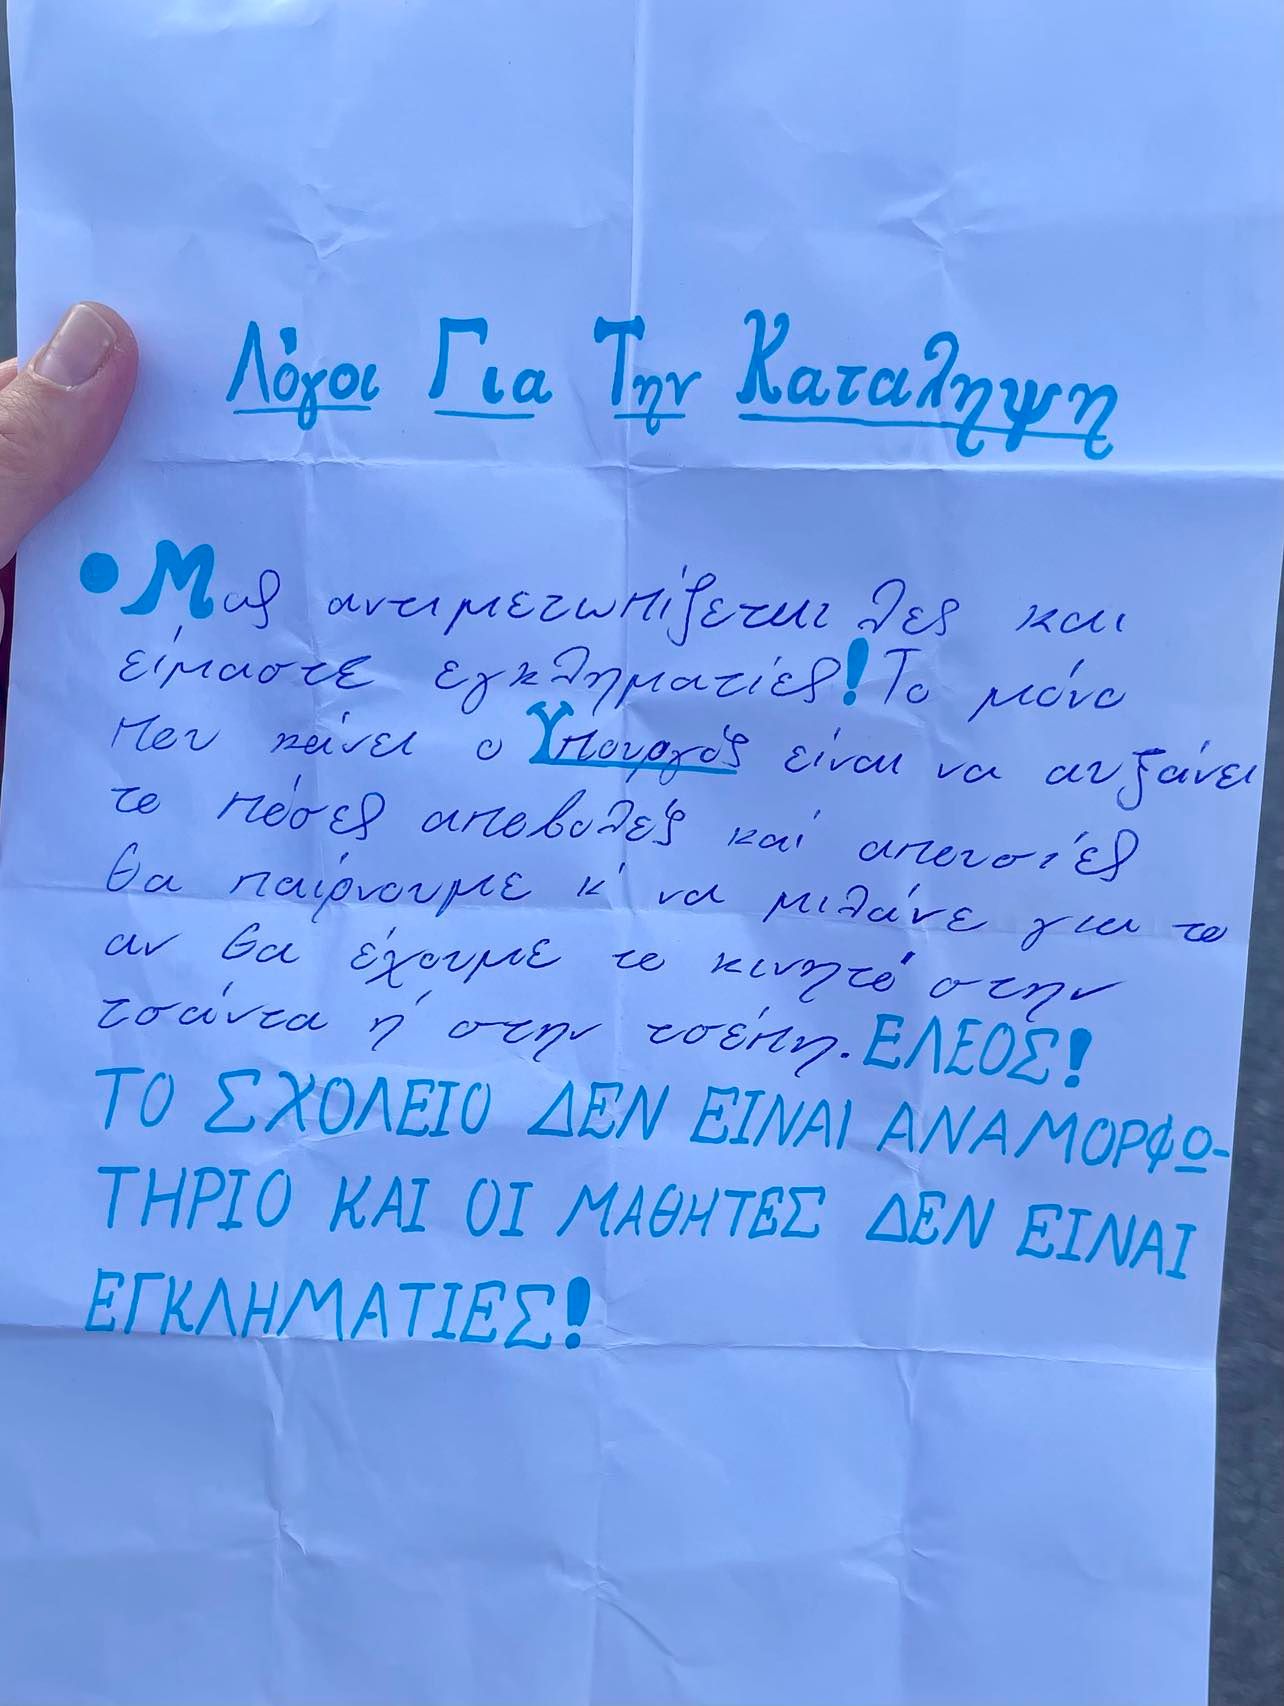 Λόγοι Για Την Καταληψη
• Μας αντιμετωπίζεται λες και
είμαστε εγκληματίες! Το μόνο
που κάνει ο Υπουργός είναι να αυξάνει
το πόσες αποβολές και απουσίες
θα παίρνουμε κ' να μιλάνε για το
αν θα έχουμε το κινητό στην
τσάντα ή στην τσέπη. ΕΛΕΟΣ!
ΤΟ ΣΧΟΛΕΙΟ ΔΕΝ ΕΙΝΑΙ ΑΝΑΜΟΡΦΩ-
ΤΗΡΙΟ ΚΑΙ ΟΙ ΜΑΘΗΤΕΣ ΔΕΝ ΕΙΝΑΙ
ΕΓΚΛΗΜΑΤΙΕΣ!